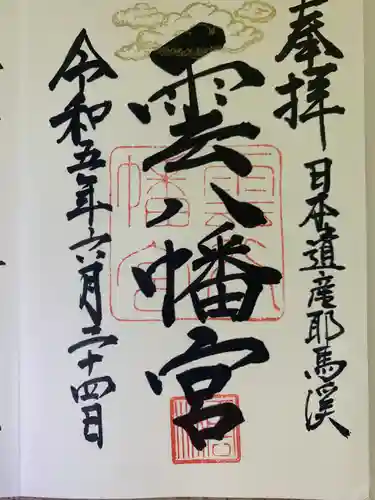 奉拝
日本遺産耶馬渓
雲八幡宮
令和五年六月二十四日